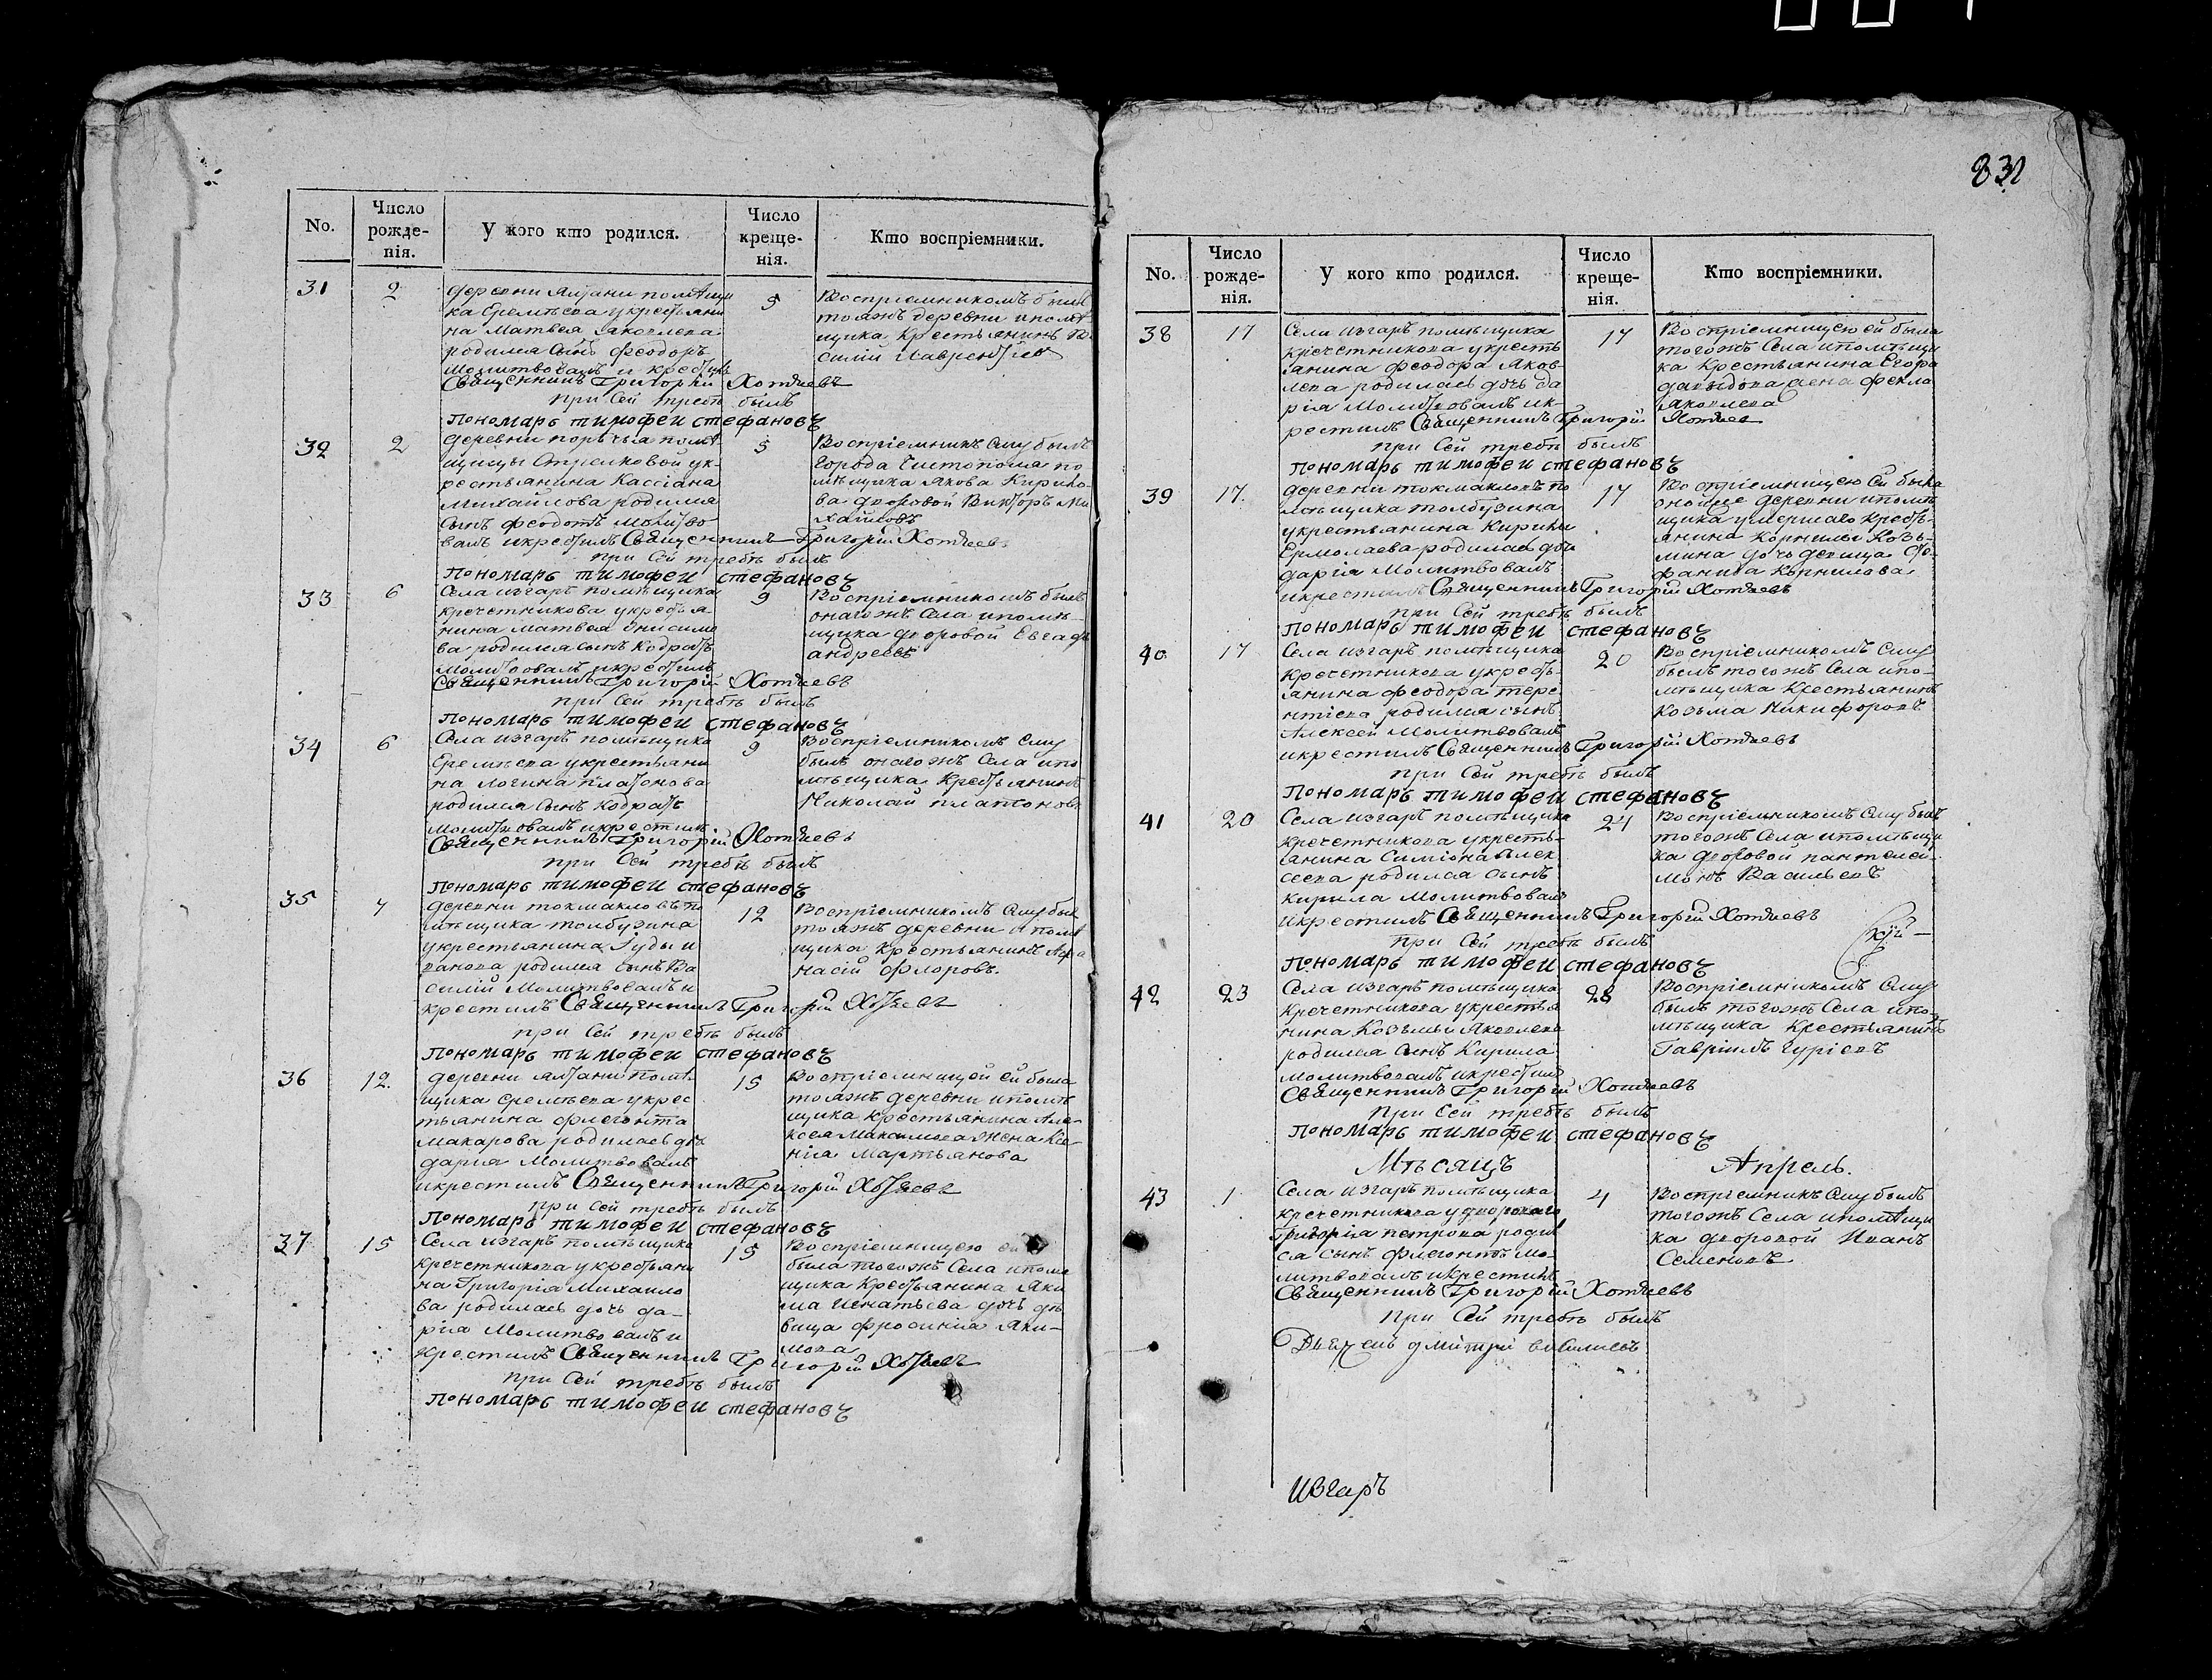 831
No.
Число рожде-нія.
У кого кто родился.
Число креще-нія.
Кто воспріемники.
31
2
деревни Ялтани помѣщи
ка Еремѣева у крестьяни
на Матвея Яковлева
родился Сынъ Феодоръ
Молитвовалъ и крестилъ
Священникъ Григорій Хотяевъ
при Сей требѣ былъ
Пономарь тимофеи стефановъ
5
Воспріемникомъ былъ
тояжъ деревни и помѣ
щика Крестьянинъ Ва
силій Лаврентіев
32
2
деревни порѣчья помѣ
щицы Стрелковой ук-
рестьянина Кассіана
Михайлова родился
сынъ Феодотъ молитво
валъ и крестилъ Священникъ Григорій Хотяевъ
при Сей требѣ былъ
Пономарь тимофеи стефановъ
5
Воспріемникъ Ему былъ
города Чистополя по
мѣщика Якова Кирило-
ва дворовой Викторъ Ми
хайловъ
33
6
Села изгаръ помѣщика
кречетникова у крестья
нина Матвея Онисимо
ва родился сынъ Кодратъ
Молитвовалъ и крестилъ
Священникъ Григорій Хотяевъ
при Сей требѣ былъ
Пономарь тимофеи стефановъ
9
Воспріемникомъ былъ
онагожъ Села и помѣ-
щика дворовой Евграфъ
андреевъ
34
6
Села изгаръ помѣщика
Еремѣева укрестьяни
на Логина платонова
родился Сынъ Кодратъ
Молитвовалъ и крестилъ
Священникъ Григорій Хотяевъ
при Сей требѣ былъ
Пономарь тимофеи стефановъ
9
Воспріемникомъ Ему
былъ онагожъ Села и по
мѣщика Крестьянинъ
Николай платоновъ
35
7
деревни токмакловъ по
мѣщика толбузина
укрестьянина Іуды и
ванова родился сынъ Ва
силій Молитвовалъ и
крестилъ Священникъ Григорій Хотяевъ
при Сей требѣ былъ
Пономарь тимофеи стефановъ
12
Воспріемникомъ Ему был
тояжъ деревни и помѣ
щика крестьянинъ Афа
насій Флоровъ.
36
12.
деревни ялтани помѣ
щика еремѣева укрес
тьянина Флегонта
Макарова родилась дочь
дарія Молитвовалъ
и крестилъ Священникъ Григорій Хотяевъ
при Сей требѣ былъ
Пономарь тимофеи стефановъ
15
Воспріемницей ей была
тояжъ деревни и помѣ
щика крестьянина Але-
ксея Максимова жена Ксе-
нія Мартьянова
37
15
Села изгаръ помѣщика
кречетникова у крестьяни
на Григорія Михаило
ва родилась дочь да-
рія Молитвовалъ и
крестилъ Священникъ Григорій Хотяевъ
при Сей требѣ былъ
Пономарь тимофеи стефановъ
15
Воспріемницею ей
была тогожъ Села и помѣ
щика Крестьянина Яки
ма Игнатьева дочь дѣ
вица Фросинія Яки-
мова
No.
Число рожде-нія.
У кого кто родился.
Число креще-нія.
Кто воспріемники.
38
17
Села изгаръ помѣщика
кречетникова укресть
янина Феодора Яков-
лева родилась дочь да
рія Молитвовалъ и к-
рестилъ Священникъ Григорій Хотяев
при Сей требѣ былъ
Пономарь тимофеи стефановъ
17
Воспріемницею ей была
тогожъ Села и помѣщи
ка Крестьянина Егора
давыдова жена Фекла
Яковлева
39
17.
деревни токмакловъ по
мѣщика толбузина
укрестьянина Кирилы
Ермолаева родилась дочь
дарія Молитвовалъ
и крестилъ Священникъ Григорій Хотяевъ
при Сей требѣ былъ
Пономарь тимофеи стефановъ
17
Воспріемницею Ей была
оной же деревни и помѣ
щика умершаго Кресть-
янина Корнилы Козь-
мина дочь девица Сте-
фанида Корнилова
40
17
Села изгаръ помѣщика
кречетникова укресть-
янина Феодора тере
нтіева родился сынъ
Алексей Молитвовалъ
и крестилъ Священникъ Григорій Хотяевъ
при Сей требѣ былъ
Пономарь тимофеи стефановъ
20
Воспріемникомъ Ему
былъ тогожъ Села и по-
мѣщика Крестьянинъ
Козьма Никифоровъ
41
20
Села изгаръ помѣщика
кречетникова укресть-
янина Симіона Алек
сеева родился сынъ
Кирила Молитвовалъ
и крестилъ Священникъ Григорій Хотяевъ
при Сей требѣ былъ
Пономарь тимофеи стефановъ
24
Воспріемникомъ Ему былъ
тогожъ Села и помѣщи
ка дворовой пантелей-
монъ Васильевъ
42
23
Села изгаръ помѣщика
кречетникова укрестья
нина Козьмы Яковлева
родился сынъ Кирила
Молитвовалъ и крестилъ
Священникъ Григорій Хотяевъ
при Сей требѣ былъ
Пономарь тимофеи стефановъ
28
Воспріемникомъ Ему
былъ тогожъ Села и по
мѣщика Крестьянинъ
Гавріилъ Гуріевъ
Мѣсяцъ Апрель.
43
1
Села изгаръ помѣщика
кречетникова у двороваго
Григорія петрова родил
ся сынъ Флегонтъ мо-
литвовалъ и крестилъ
Священникъ Григорій Хотяевъ
при Сей требѣ былъ
4
Воспріемникъ Ему былъ
тогожъ Села и помѣщи
ка дворовой Иванъ
Семеновъ
Изгаръ